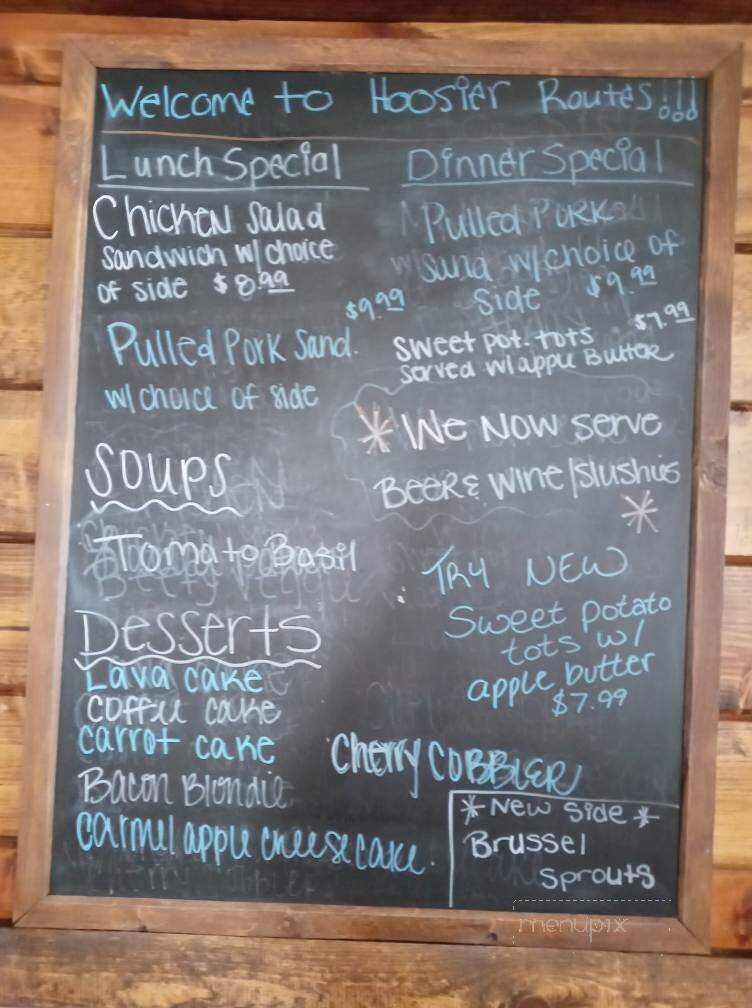 Welcome to Hoosier Routes!!!
Lunch Special
Chicken Salad
Sandwich w/ choice
of side $8.99
$9.99
Pulled Pork Sand.
w/ choice of side
Soups
Tomato Basil
Desserts
Lava cake
Coffee cake
Carrot cake
Bacon Blondie
Carmel apple cheesecake.
Dinner Special
Pulled Pork
Sand w/ choice of
Side $9.99
Sweet pot. tots $7.99
served w/ apple Butter
* We Now serve
Beer & Wine/Slushies
*
Try New
Sweet potato
tots w/
apple butter
$7.99
Cherry Cobbler
* New Side *
Brussel
Sprouts
menupix